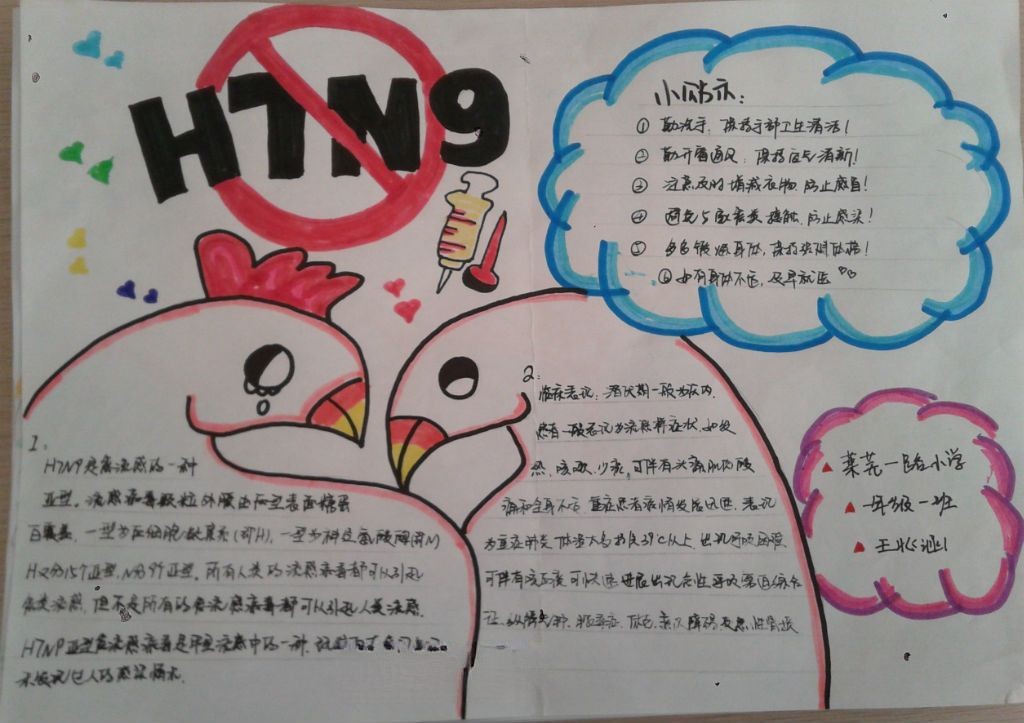 H7N9
小贴示：
① 勤洗手，保持手部卫生清洁！
② 勤开窗通风，保持空气清新！
③ 注意及时增减衣物，防止感冒！
④ 避免与家禽类接触，防止感染！
⑤ 多多锻炼身体，保持
⑥ 如有身体不适，及早就医
1、
H7N9是禽流感的一种
亚型。流感病毒颗粒外膜由两型表面糖蛋
白覆盖，一型为血细胞凝集素（即H），一型为神经氨酸酶（N）
H又分15个亚型，N分9个亚型。所有人类的流感病毒都可以引起
禽类流感，但不是所有的禽流感病毒都可以引起人类流感。
H7N9亚型禽流感病毒是甲型流感中的一种，
未被发现过人的感染情况。
2：
临床表现：潜伏期一般为7天内。
患者一般表现为流感样症状，如发
热，咳嗽，少痰，可伴有头痛肌肉酸
痛和全身不适。重症患者病情发展迅速，表现
为重症肺炎，体温大多持续39℃以上，出现呼吸困难，
可伴有咳血痰，可快速进展出现急性呼吸窘迫综合
征、纵隔气肿、脓毒症、休克、意识障碍及急性肾损
▲ 莱芜一路小学
▲ 一年级一班
▲ 王